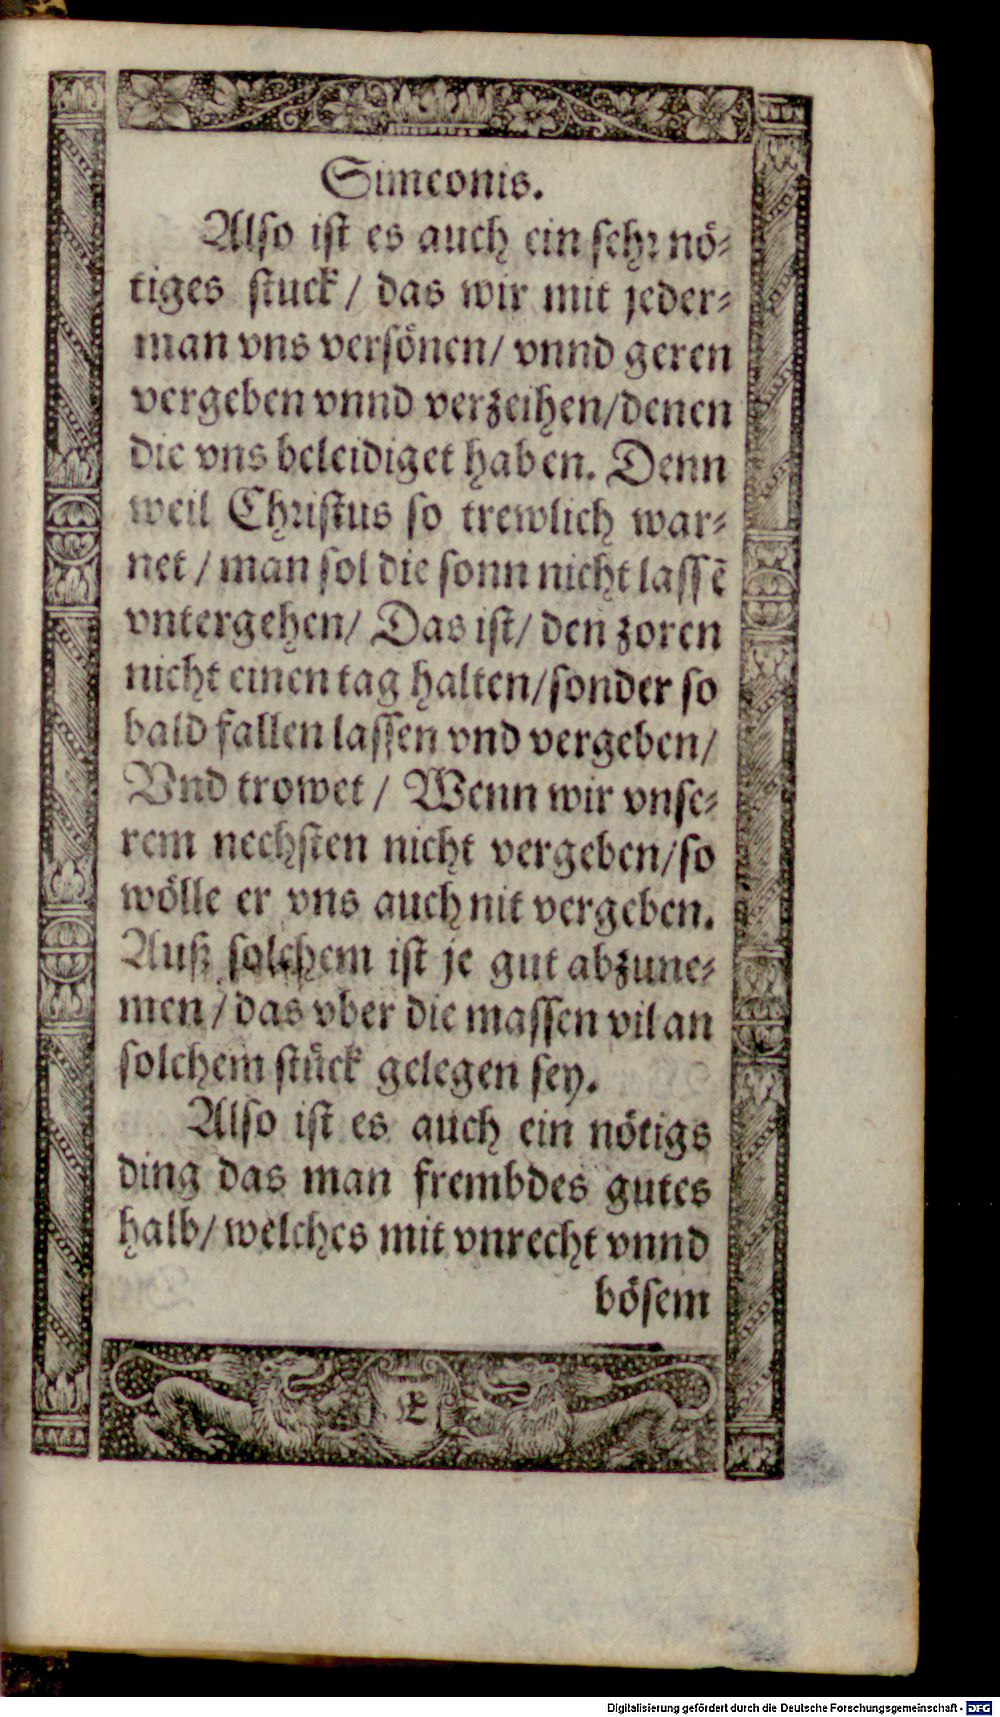 Simeonis.
Also iſt es auch ein ſehꝛ nö⸗
tiges ſtuck / das wir mit jeder⸗
man vns verſönen / vnnd geren
vergeben vnnd verzeihen / denen
die vns beleidiget haben. Denn
weil Chꝛiſtus ſo trewlich war⸗
net / man ſol die ſonn nicht laſſē
vntergehen / Das iſt / den zoren
nicht einen tag halten / ſonder ſo
bald fallen laſſen vnd vergeben /
Vnd trowet / Wenn wir vnſe⸗
rem nechſten nicht vergeben / ſo
wölle er vns auch nit vergeben.
Auß ſolchem iſt je gut abzune⸗
men / das vber die maſſen vil an
ſolchem ſtück gelegen ſey.
Also iſt es auch ein nötigs
ding das man frembdes gutes
halb / welches mit vnrecht vnnd
böſem
E
Digitalisierung gefördert durch die Deutsche Forschungsgemeinschaft - DFG